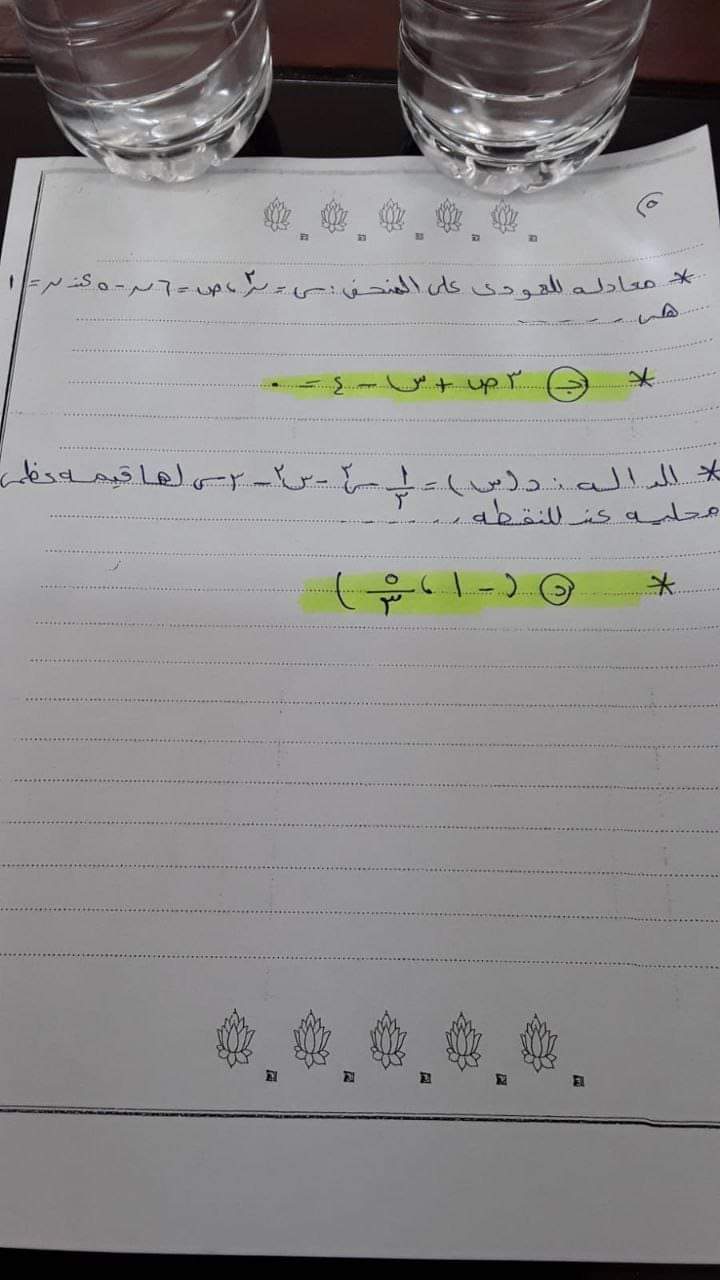 ٥
* معادله العمودى على المنحنى : س = ن٢ ، ص = ٦ن - ٥ عند ن = ١
هى - - - - -
* ج ٣ص + س - ٤ = ٠
* الداله : د(س) = ١/٣ س٣ - س٢ - ٣س لها قيمه عظمى
محليه عند النقطه - - - - -
* د ( - ١ ، ٥/٣ )